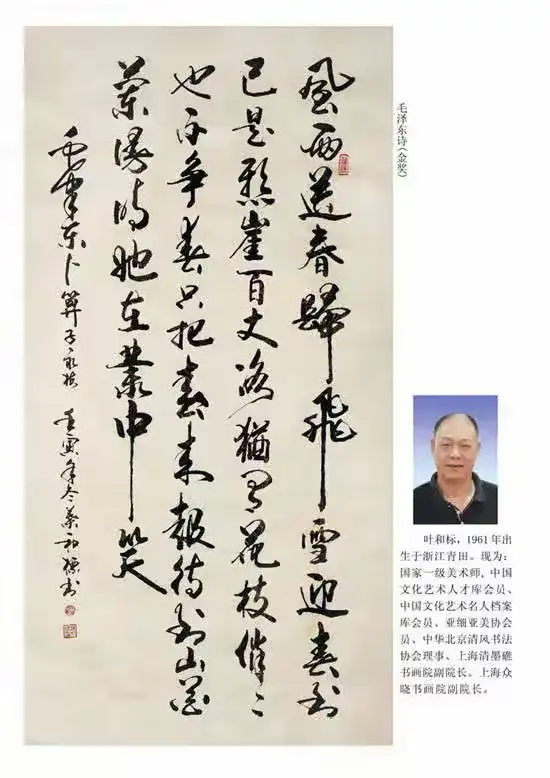 風雨送春歸飛雪迎春到
已是懸崖百丈冰猶有花枝俏〻
也不争春只把春来報待到山花
爛漫時她在叢中笑
毛澤東卜算子詠梅 壬寅年冬葉和標書
毛泽东诗(金奖)
叶和标，1961年出
生于浙江青田。现为：
国家一级美术师，中国
文化艺术人才库会员、
中国文化艺术名人档案
库会员、亚细亚美协会
员、中华北京清风书法
协会理事、上海清墨礁
书画院副院长。上海众
晓书画院副院长。